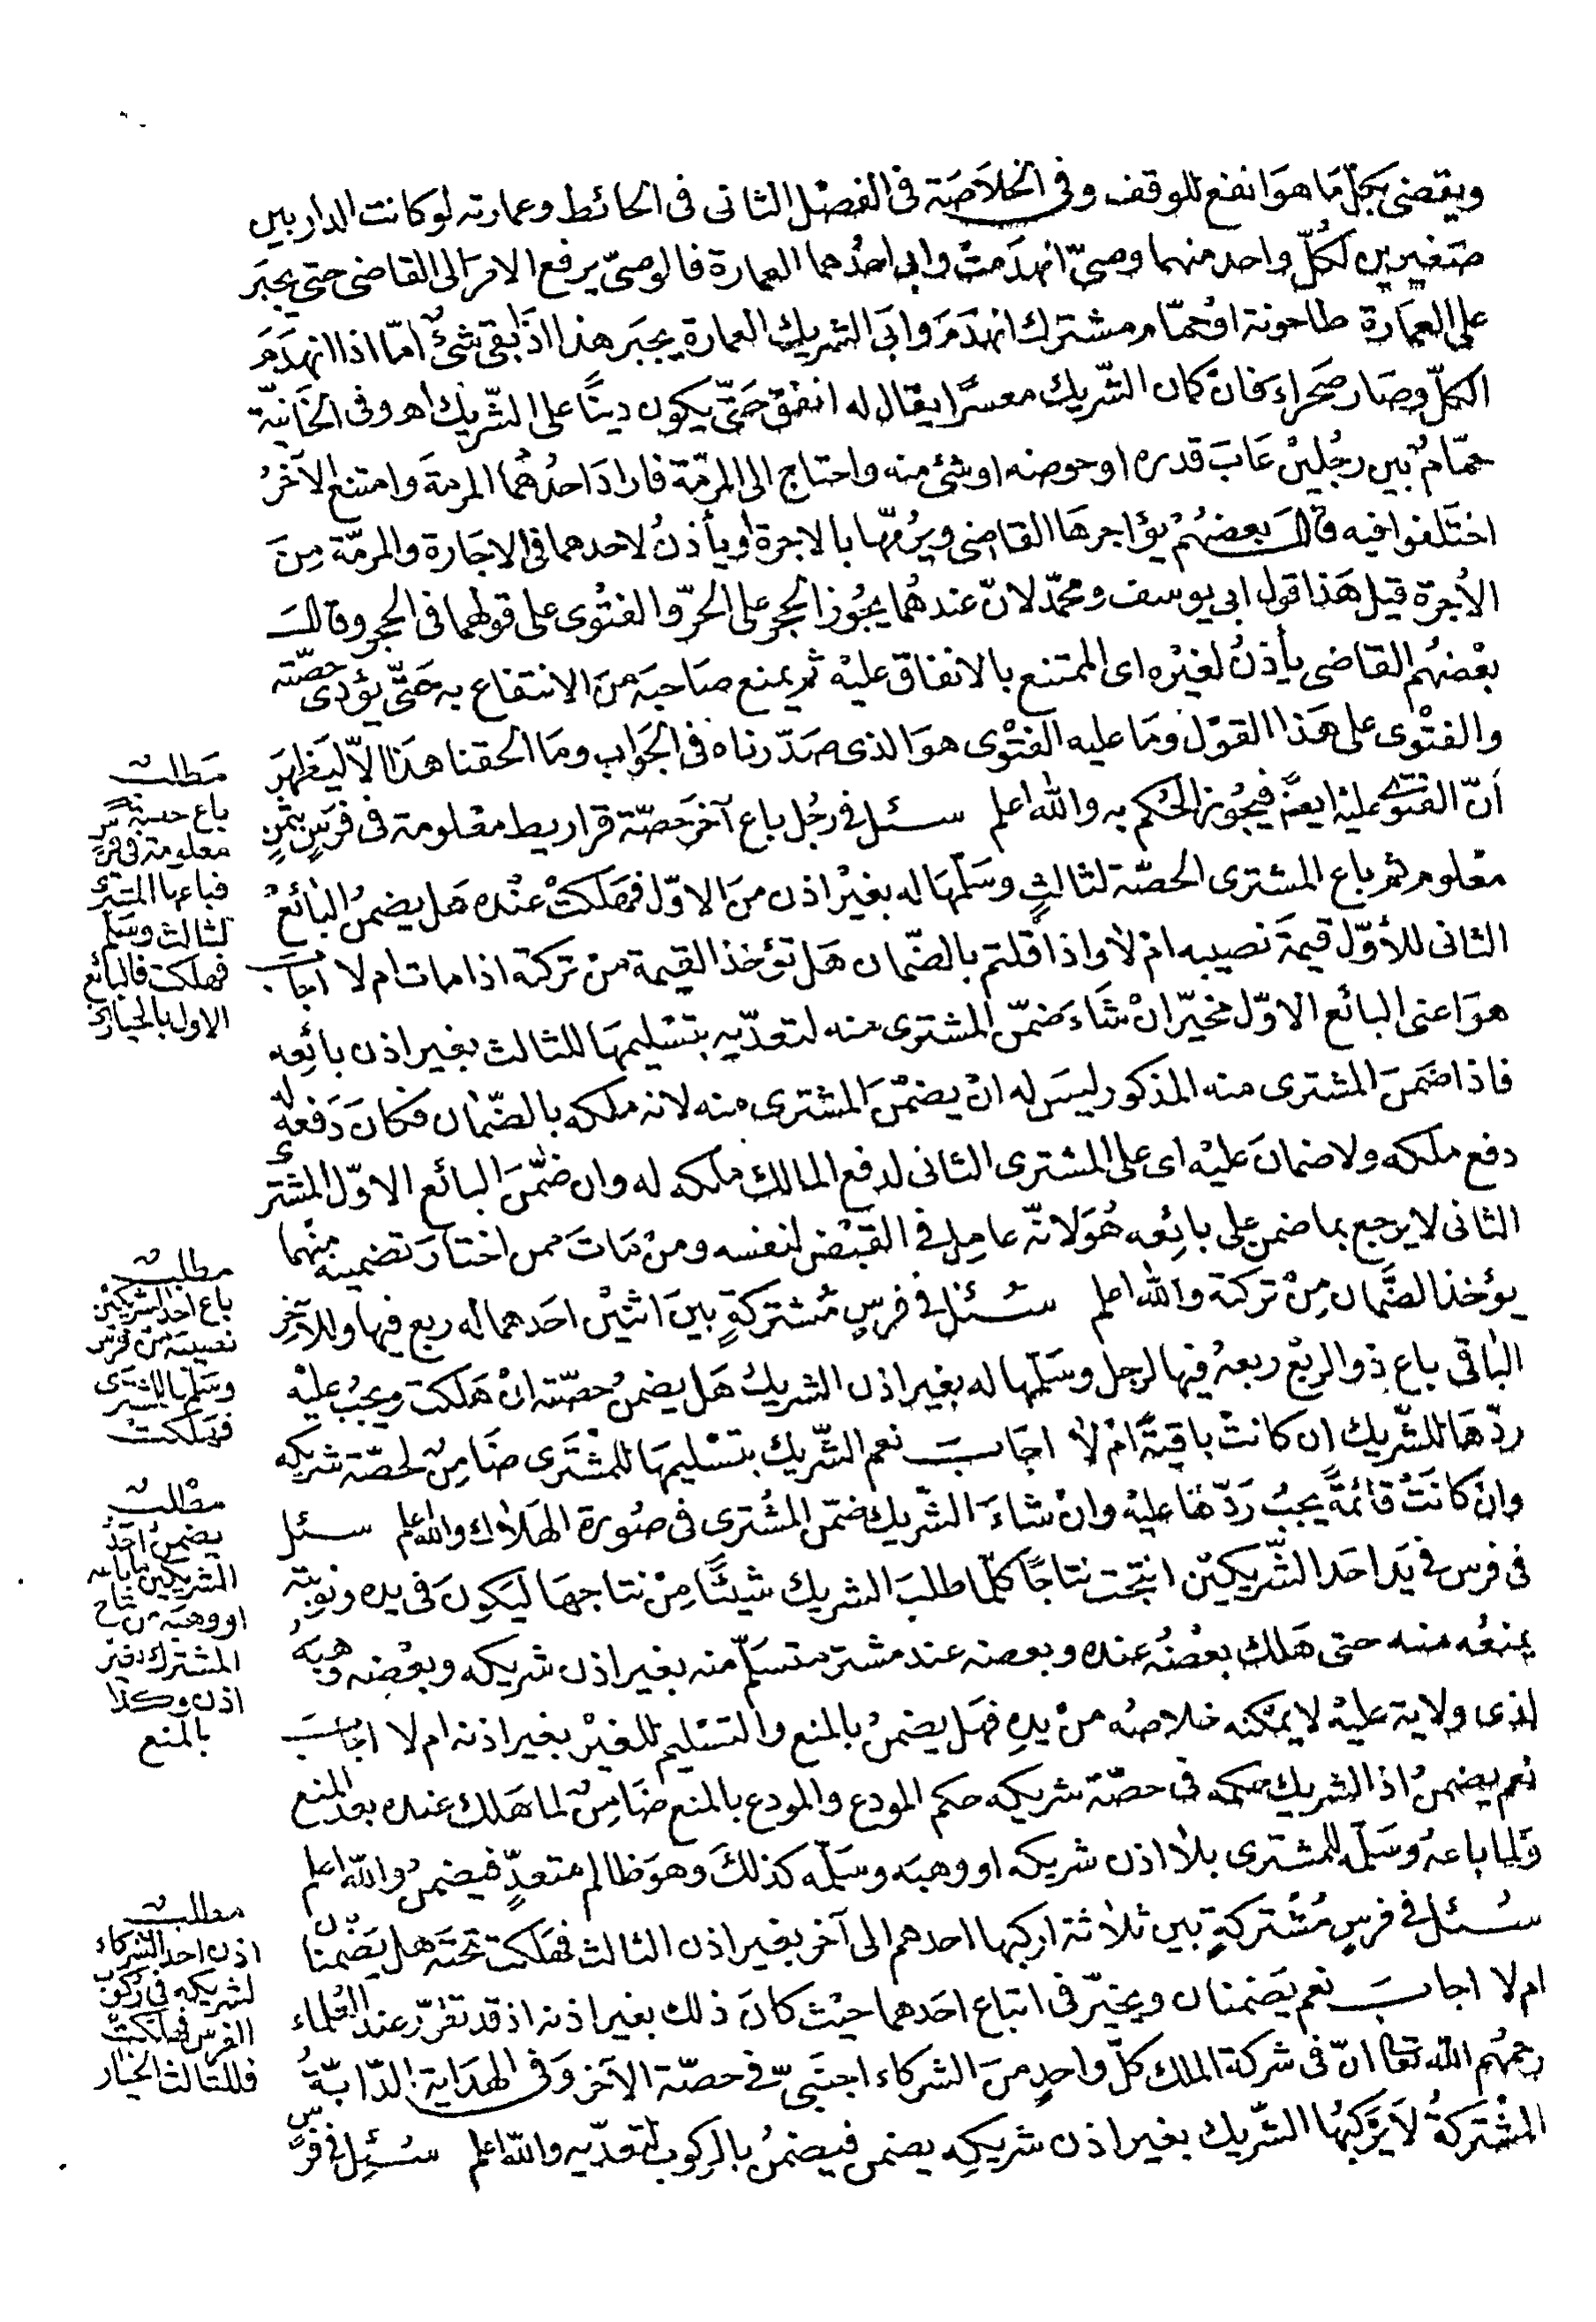 ويقضى بكل ما هو انفع للوقف وفى الخلاصة فى الفصل الثانى فى الحائط وعمارته لو كانت الدار بين
صغيرين لكل واحد منهما وصى انهدمت وابى احدهما العمارة فالوصى يرفع الامر الى القاضى حتى يجبر
على العمارة طاحونة او حمام مشترك انهدم وابى الشريك العمارة يجبر هذا اذا بقى شئ اما اذا انهدم
الكل وصار صحراء فان كان الشريك معسرا يقال له انفق حتى يكون دينا على الشريك اهـ وفى الخانية
حمام بين رجلين غاب قدره او حوضه او شئ منه واحتاج الى المرمة فاراد احدهما المرمة وامتنع الآخر
اختلفوا فيه قال بعضهم يؤاجرها القاضى ويرمها بالاجرة او يأذن لاحدهما فى الاجارة والمرمة من
الأجرة قيل هذا قول ابى يوسف ومحمد لان عندهما يجوز الحجر على الحر والفتوى على قولهما فى الحجر وقال
بعضهم القاضى يأذن لغيره اى الممتنع بالانفاق عليه ثم يمنع صاحبه من الانتفاع به حتى يؤدى حصته
والفتوى على هذا القول وما عليه الفتوى هو الذى صدرناه فى الجواب وما الحقنا هذا الا ليظهر
ان الفتوى عليه ايضا فيجوز الحكم به والله اعلم سئل فى رجل باع آخر حصة قراريط معلومة فى فرس بثمن
معلوم ثم باع المشترى الحصة لثالث وسلمها له بغير اذن من الاول فهلكت عنده هل يضمن البائع
الثانى للأول قيمة نصيبه ام لا واذا قلتم بالضمان هل تؤخذ القيمة من تركته اذا مات ام لا اجاب
هو اعنى البائع الاول مخير ان شاء ضمن المشترى منه لتعديه بتسليمها للثالث بغير اذن بائعه
فاذا ضمن المشترى منه المذكور ليس له ان يضمن المشترى منه لانه ملكه بالضمان فكان دفعه له
دفع ملكه ولا ضمان عليه اى على المشترى الثانى لدفع المالك ملكه له وان ضمن البائع الاول المشترى
الثانى لا يرجع بما ضمن على بائعه هو لانه عامل فى القبض لنفسه ومن مات ممن اختار تضمينه منهما
يؤخذ الضمان من تركته والله اعلم سئل فى فرس مشتركة بين اثنين احدهما له ربع فيها وللآخر
الباقى باع ذو الربع ربعه فيها لرجل وسلمها له بغير اذن الشريك هل يضمن حصته ان هلكت ويجب عليه
ردها للشريك ان كانت باقية ام لا اجاب نعم الشريك بتسليمها للمشترى ضامن لحصة شريكه
وان كانت قائمة يجب ردها عليه وان شاء الشريك ضمن المشترى فى صورة الهلاك والله اعلم سئل
فى فرس فى يد احد الشريكين انتجت نتاجا كلما طلب الشريك شيئا من نتاجها ليكون فى يده ونوبته
يمنعه منه حتى هلك بعضه عنده وبعضه عند مشتر متسلم منه بغير اذن شريكه وبعضه وهبه
لذى ولاية عليه لا يمكنه خلاصه من يده فهل يضمن بالمنع والتسليم للغير بغير اذنه ام لا اجاب
نعم يضمن اذ الشريك حكمه فى حصة شريكه حكم المودع والمودع بالمنع ضامن لما هلك عنده بعد المنع
ولما باعه وسلمه للمشترى بلا اذن شريكه او وهبه وسلمه كذلك وهو ظالم متعد فيضمن والله اعلم
سئل فى فرس مشتركة بين ثلاثة اركبها احدهم الى آخر بغير اذن الثالث فهلكت تحته هل يضمنان
ام لا اجاب نعم يضمنان ويخير فى اتباع احدهما حيث كان ذلك بغير اذنه اذ قد تقرر عند العلماء
رحمهم الله تعالى ان فى شركة الملك كل واحد من الشركاء اجنبى فى حصة الآخر وفى الهداية الدابة
المشتركة لا يركبها الشريك بغير اذن شريكه يضمن فيضمن بالركوب لتعديه والله اعلم سئل فى فرس
مطلب
باع حصة
معلومة فى فرس
فباعها المشترى
لثالث وسلم
فهلكت فالبائع
الاول بالخيار
مطلب
باع احد الشريكين
نصيبه من فرس
وسلمها للمشترى
فهلكت
مطلب
يضمن احد
الشريكين ما باعه
او وهبه من نتاج
المشترك بغير
اذن وكذا
بالمنع
مطلب
اذن احد الشركاء
لشريكه فى ركوب
الفرس فهلكت
فللثالث الخيار